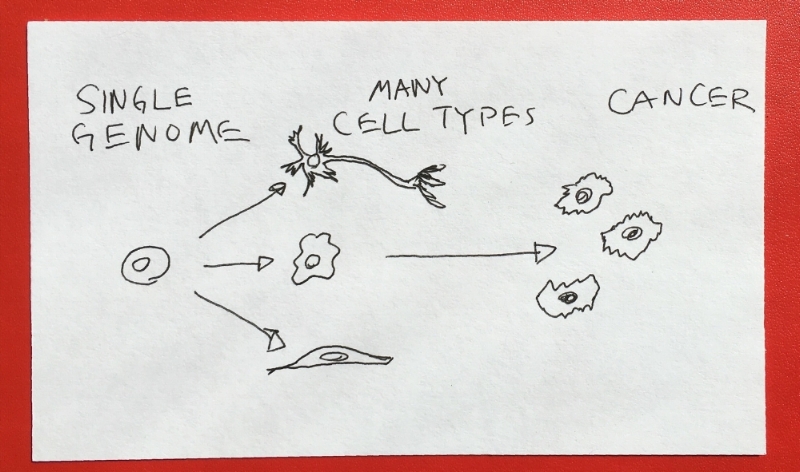 SINGLE
GENOME
MANY
CELL TYPES
CANCER